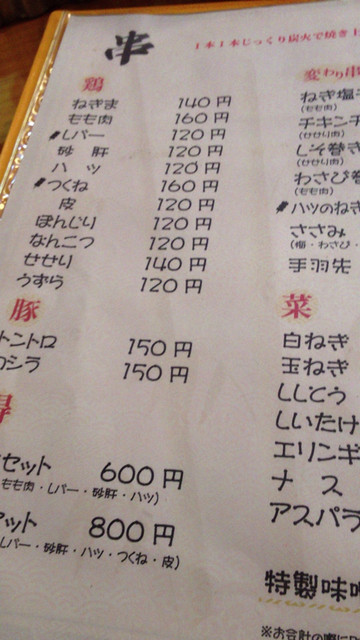 串
1本1本じっくり炭火で焼き上
鶏
ねぎま 140円
もも肉 160円
レバー 120円
砂肝 120円
ハツ 120円
つくね 160円
皮 120円
ぼんじり 120円
なんこつ 120円
せせり 140円
うずら 120円
豚
トントロ 150円
カシラ 150円
セット 600円
もも肉・レバー・砂肝・ハツ)
セット 800円
レバー・砂肝・ハツ・つくね・皮)
変わり串
ねぎ塩
(もも肉)
チキンチ
(せせり肉)
しそ巻き
(せせり肉)
わさび巻
(もも肉)
ハツのねぎ
ささみ
(梅・わさび・
手羽先
菜
白ねぎ
玉ねぎ
ししとう
しいたけ
エリンギ
ナス
アスパラ
特製味噌
※お会計の際に